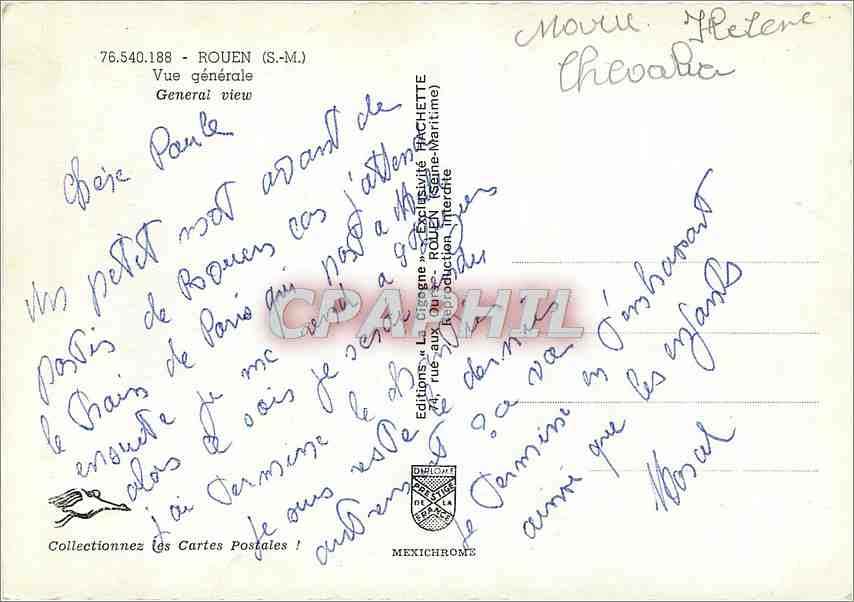 76.540.188 - ROUEN (S.-M.)
Vue générale
General view
Marie Helene
Chère Paule
Un petit mot avant de
partir de Rouen car j'attend
le train de Paris qui part a
ensuite je me rend a
alors ce soir je serai
j'ai termine le
je suis reste le dernier
autrement ? ça va
je termine en t'embrassant
ainsi que les enfants
Editions « La Cigogne » - Exclusivité HACHETTE
74, rue aux Ours - ROUEN (Seine-Maritime)
Reproduction Interdite
CPAPHIL
DIPLOME
PRESTIGE
DE LA
FRANCE
Collectionnez les Cartes Postales !
MEXICHROME